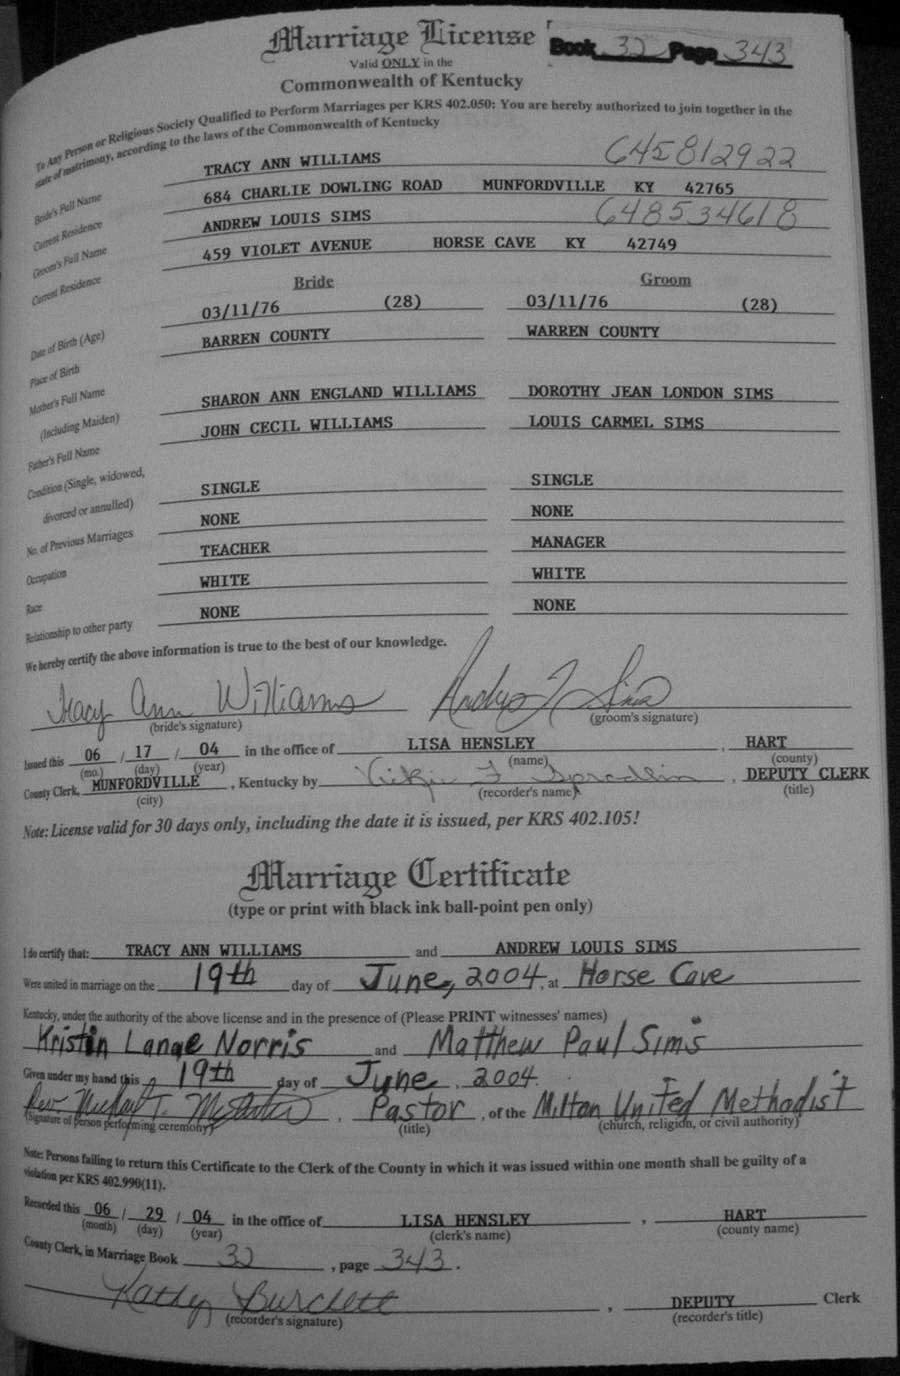 Marriage License
Book 32 Page 343
Valid ONLY in the
Commonwealth of Kentucky
To Any Person or Religious Society Qualified to Perform Marriages per KRS 402.050: You are hereby authorized to join together in the
state of matrimony, according to the laws of the Commonwealth of Kentucky
Bride's Full Name TRACY ANN WILLIAMS 645812922
Current Residence 684 CHARLIE DOWLING ROAD MUNFORDVILLE KY 42765
Groom's Full Name ANDREW LOUIS SIMS 648534618
Current Residence 459 VIOLET AVENUE HORSE CAVE KY 42749
Bride Groom
Date of Birth (Age) 03/11/76 (28) 03/11/76 (28)
Place of Birth BARREN COUNTY WARREN COUNTY
Mother's Full Name
(Including Maiden) SHARON ANN ENGLAND WILLIAMS DOROTHY JEAN LONDON SIMS
Father's Full Name JOHN CECIL WILLIAMS LOUIS CARMEL SIMS
Condition (Single, widowed,
divorced or annulled) SINGLE SINGLE
No. of Previous Marriages NONE NONE
Occupation TEACHER MANAGER
Race WHITE WHITE
Relationship to other party NONE NONE
We hereby certify the above information is true to the best of our knowledge.
Tracy Ann Williams Andrew L Sims
(bride's signature) (groom's signature)
Issued this 06 / 17 / 04 in the office of LISA HENSLEY , HART
(mo.) (day) (year) (name) (county)
County Clerk, MUNFORDVILLE , Kentucky by Vickie F Spradlin , DEPUTY CLERK
(city) (recorder's name) (title)
Note: License valid for 30 days only, including the date it is issued, per KRS 402.105!
Marriage Certificate
(type or print with black ink ball-point pen only)
I do certify that: TRACY ANN WILLIAMS and ANDREW LOUIS SIMS
Were united in marriage on the 19th day of June, 2004, at Horse Cave
Kentucky, under the authority of the above license and in the presence of (Please PRINT witnesses' names)
Kristin Lange Norris and Matthew Paul Sims
Given under my hand this 19th day of June , 2004.
Rev Michael T. , Pastor , of the Milton United Methodist
(Signature of person performing ceremony) (title) (church, religion, or civil authority)
Note: Persons failing to return this Certificate to the Clerk of the County in which it was issued within one month shall be guilty of a
violation per KRS 402.990(11).
Recorded this 06 / 29 / 04 in the office of LISA HENSLEY , HART
(month) (day) (year) (clerk's name) (county name)
County Clerk, in Marriage Book 32 , page 343 .
Kathy Burchett , DEPUTY Clerk
(recorder's signature) (recorder's title)